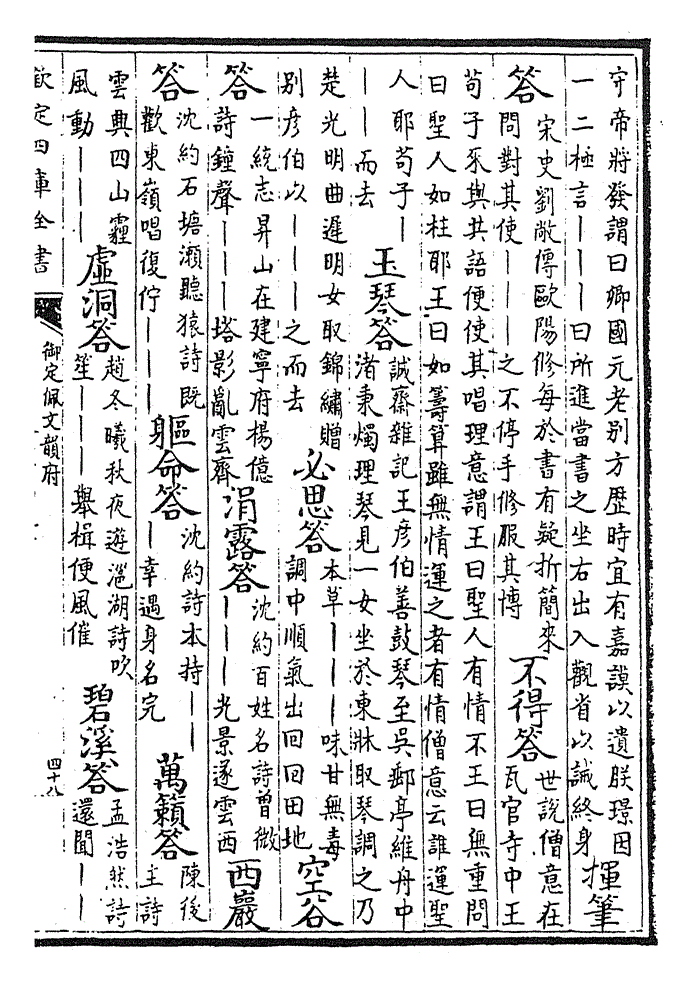 守帝將發謂曰卿國元老别方歴時宜有嘉謨以遺朕璟因
一二極言｜｜｜曰所進當書之坐右出入觀省以誡終身
揮筆
答
宋史劉敞傳歐陽修每於書有疑折簡來
問對其使｜｜｜之不停手修服其博
不得答
世説僧意在
瓦官寺中王
苟子來與其語便使其唱理意謂王曰聖人有情不王曰無重問
曰聖人如柱耶王曰如籌算雖無情運之者有情僧意云誰運聖
人耶苟子｜
｜｜而去
玉琴答
誠齋雜記王彦伯善鼓琴至吳郵亭維舟中
渚秉燭理琴見一女坐於東牀取琴調之乃
楚光明曲遲明女取錦繡贈
别彦伯以｜｜｜之而去
必思答
本草｜｜｜味甘無毒
調中順氣出回回田地
空谷
答
一統志昇山在建寧府楊億
詩鐘聲｜｜｜塔影亂雲齊
涓露答
沈約百姓名詩曾微
｜｜｜光景遂雲西
西巖
答
沈約石塘瀬聽猿詩既
歡東嶺唱復佇｜｜｜
軀命答
沈約詩本持｜｜
｜幸遇身名完
萬籟答
陳後
主詩
雲興四山霾
風動｜｜｜
虚洞答
趙冬曦秋夜遊㴩湖詩吹
笙｜｜｜舉楫便風催
碧溪答
孟浩然詩
還聞｜｜
欽定四庫全書
御定佩文韻府
四十八